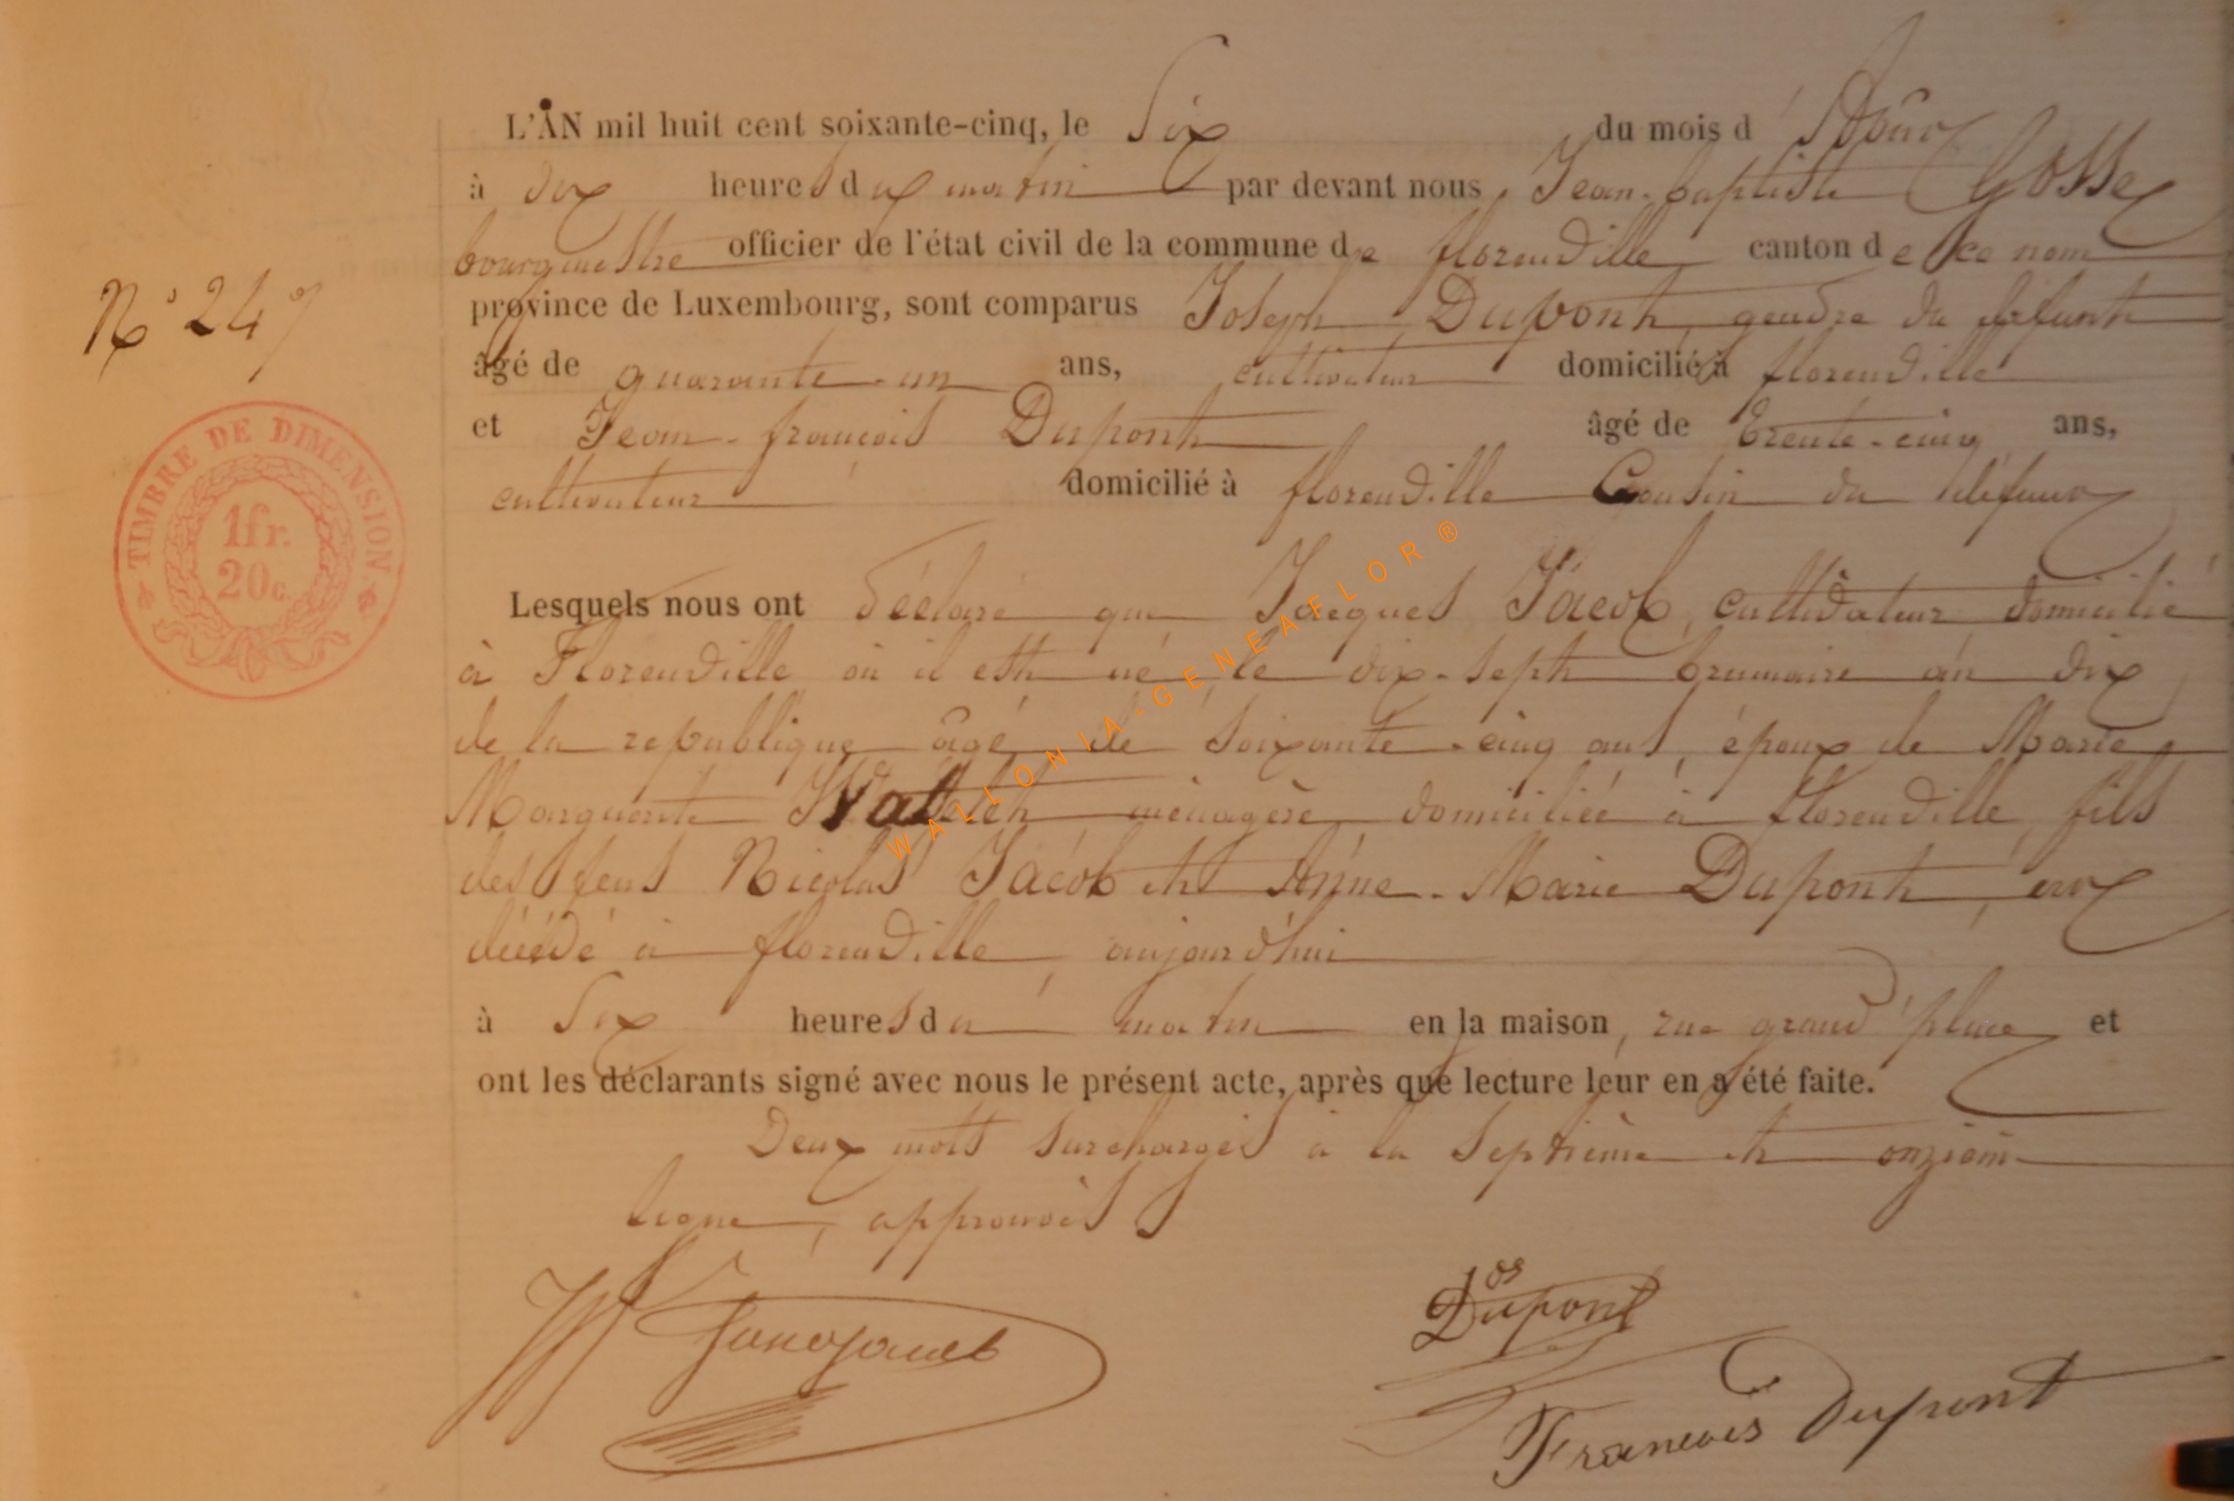 L'AN mil huit cent soixante-cinq, le Six du mois d'Août
à dix heures du matin par devant nous, Jean-baptiste Gosse
bourgmestre officier de l'état civil de la commune de florenville canton de ce nom
N° 247
province de Luxembourg, sont comparus Joseph Dupont, gendre du défunt
âgé de quarante-un ans, cultivateur domicilié à florenville
et Jean-françois Dupont âgé de trente-cinq ans,
cultivateur domicilié à florenville Cousin du défunt
TIMBRE DE DIMENSION
1fr.
20c.
Lesquels nous ont déclaré que Jacques Jacob, cultivateur domicilié
à Florenville où il est né le dix-sept brumaire an dix
de la republique âgé de soixante-cinq ans, époux de Marie
Marguerite ménagère domiciliée à florenville, fils
des feus Nicolas Jacob et Anne-Marie Dupont, est
décédé à florenville, aujourd'hui
à Six heures du matin en la maison, rue grand'place et
ont les déclarants signé avec nous le présent acte, après que lecture leur en a été faite.
Deux mots surchargés à la septième et onzième
ligne, approuvés
Dupont
Francois Dupont
WALLONIA-GENEAFLOR®